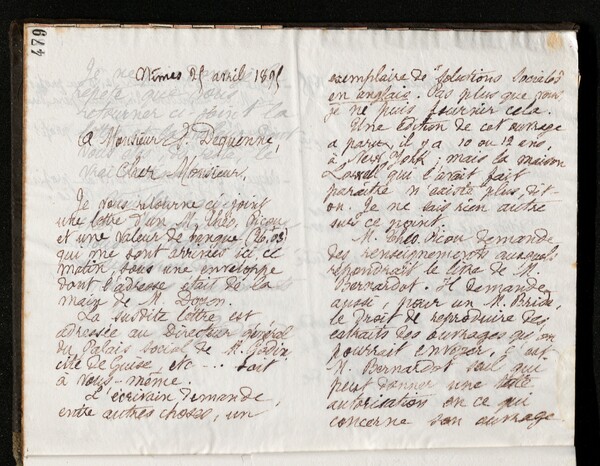 479
Nîmes 25 avril 1895
à Monsieur J. Dequenne,
Cher Monsieur,
Je vous retourne ci-joint
une lettre d'un M. Théo. Ricou
et une valeur de banque
qui me sont arrivées ici, ce
matin, sous une enveloppe
dont l'adresse était de la
main de M. Doyon.
La susdite lettre est
adressée au Directeur général
du Palais social de M. Godin
cité de Guise, etc --- soit
à vous-même.
L'écrivain demande,
entre autres choses, un
exemplaire de "Solutions sociales"
en anglais. Pas plus que vous
je ne puis fournir cela.
Une édition de cet ouvrage
a paru, il y a 10 ou 12 ans,
à New York ; mais la maison
Lowell qui l'avait fait
paraître n'existe plus, dit-
on. Je ne sais rien autre
sur ce point.
M. Théo. Ricou demande
des renseignements auxquels
répondrait le livre de M.
Bernardot. Il demande
aussi, pour un M. Bride,
le droit de reproduire des
extraits des ouvrages qu'on
pourrait envoyer ; c'est
M. Bernardot seul qui
peut donner une telle
autorisation en ce qui
concerne son ouvrage